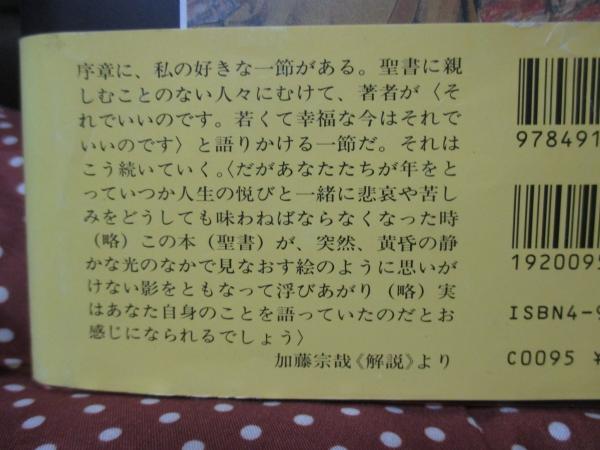 序章に、私の好きな一節がある。聖書に親
しむことのない人々にむけて、著者が〈そ
れでいいのです。若くて幸福な今はそれで
いいのです〉と語りかける一節だ。それは
こう続いていく。〈だがあなたたちが年をと
っていつか人生の悦びと一緒に悲哀や苦し
みをどうしても味わねばならなくなった時
（略）この本（聖書）が、突然、黄昏の静
かな光のなかで見なおす絵のように思いが
けない影をともなって浮びあがり（略）実
はあなた自身のことを語っていたのだとお
感じになられるでしょう〉
加藤宗哉《解説》より
978491
1920095
ISBN4-9
C0095 ¥